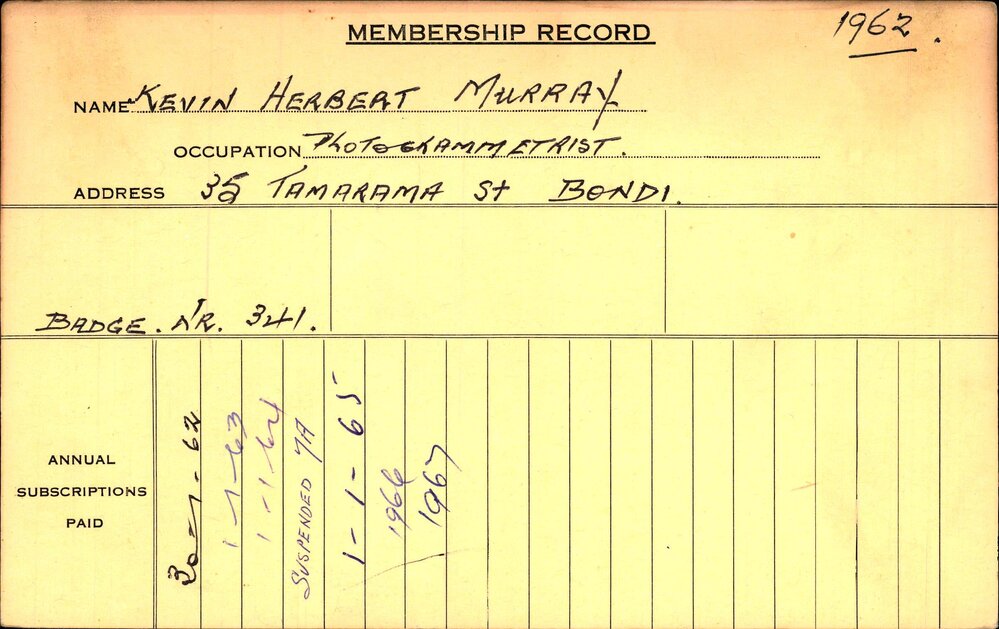 MEMBERSHIP RECORD
1962.
NAME KEVIN HERBERT MURRAY
OCCUPATION PHOTOGRAMMETRIST.
ADDRESS 35 TAMARAMA St BONDI.
BADGE. NR. 341.
ANNUAL
SUBSCRIPTIONS
PAID
30-7-62
1-7-63
1-1-64
SUSPENDED 7A
1-1-65
1966
1967